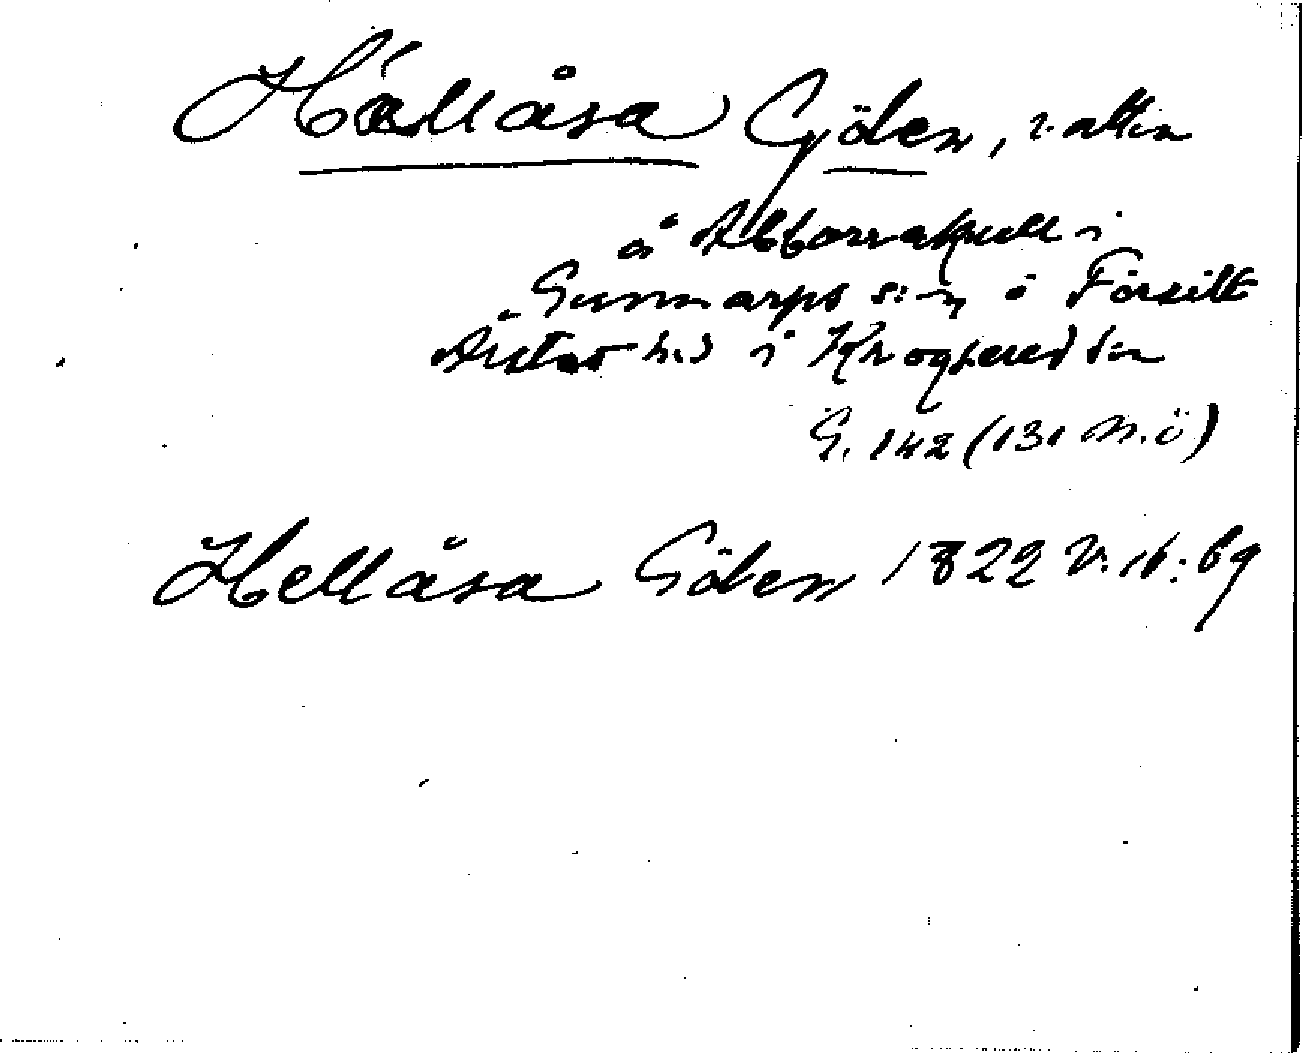 Hällåsa Gölen, vatten
å Abborrakull i
Gunnarps sn, ö Förvilt
Årstad hd i Krogsered sn
G. 142 (131 M.ö)
Hellåsa Gölen 1822 V. 16:69